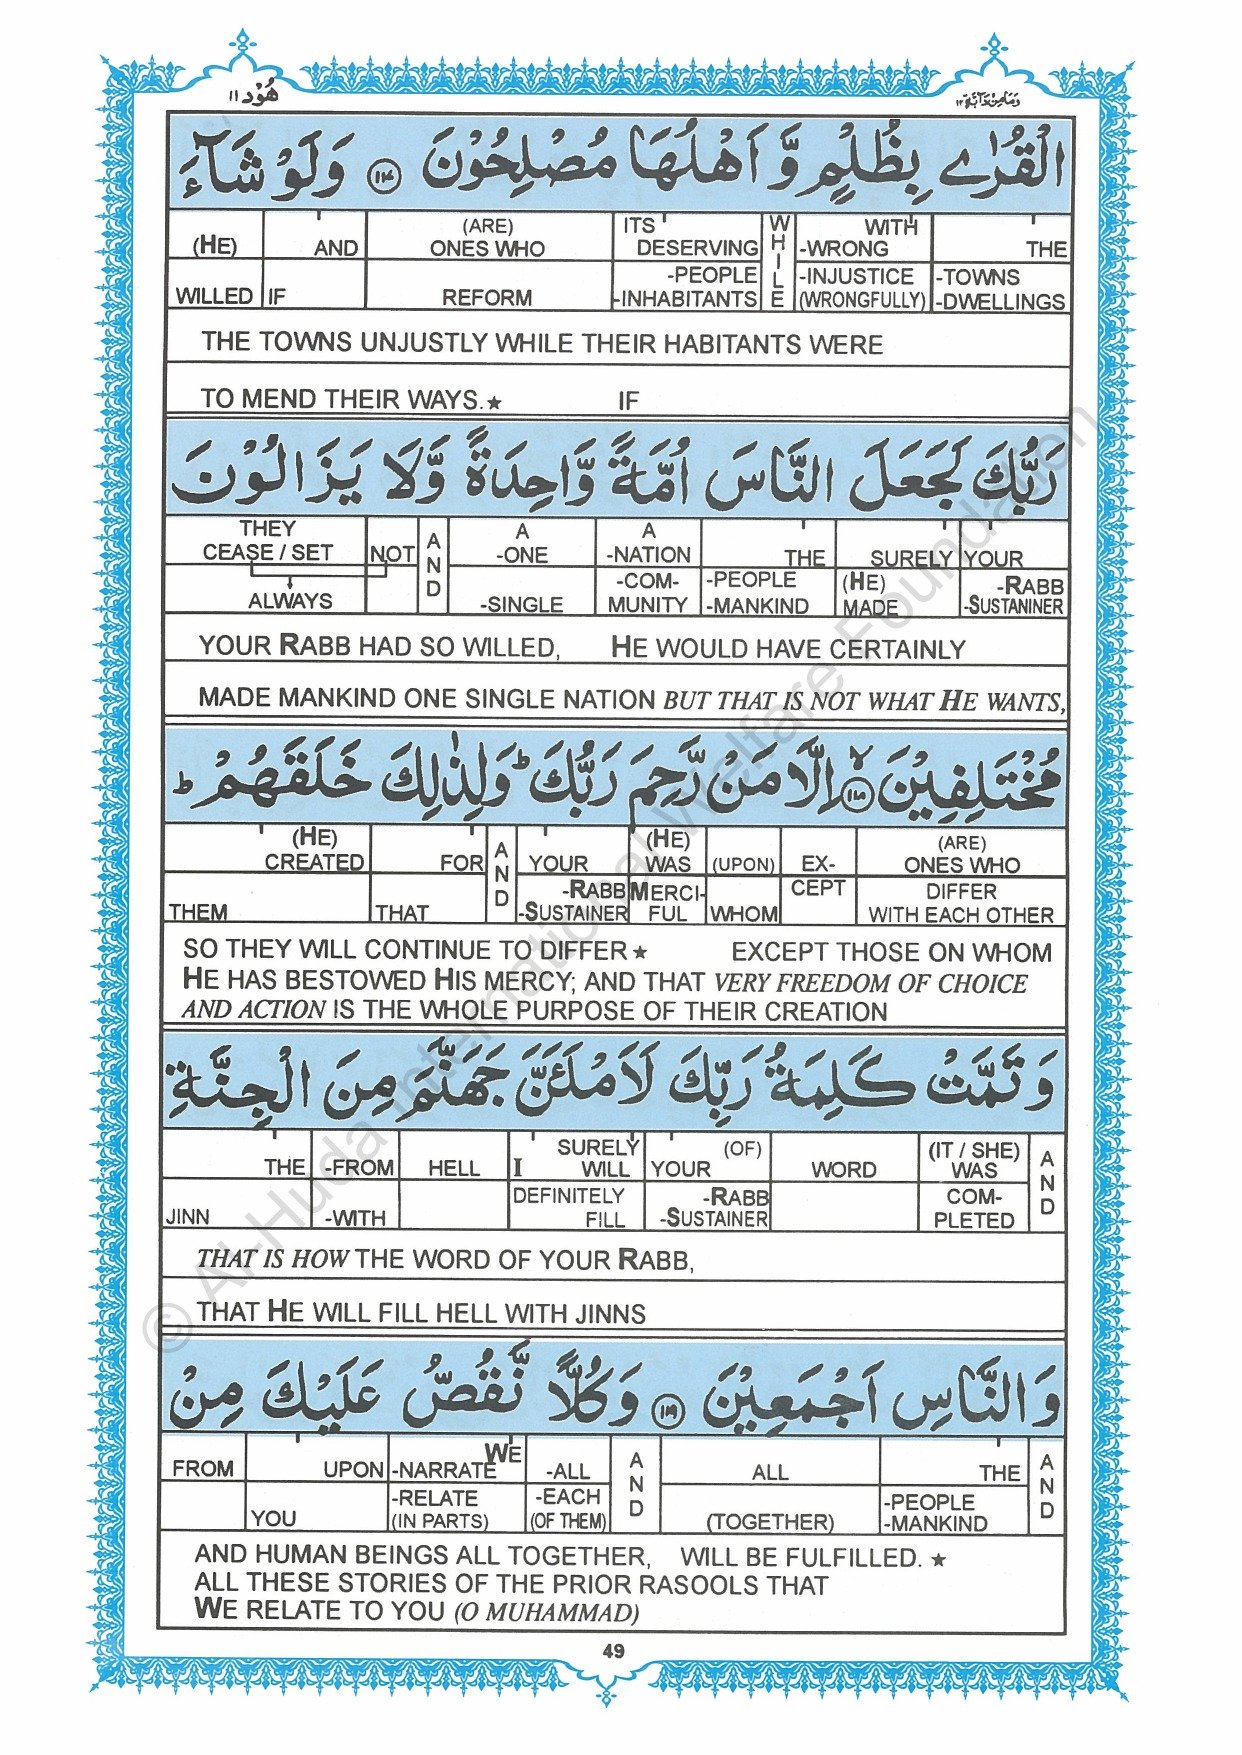 هُوْد ١١
وَمَا مِنْ دَآبَّةٍ ١٢
الْقُرٰى بِظُلْمٍ وَّ اَهْلُهَا مُصْلِحُوْنَ ﴿١١٧﴾ وَلَوْ شَآءَ
(HE) AND (ARE) ONES WHO ITS DESERVING WHILE WITH -WRONG THE
WILLED IF REFORM -PEOPLE -INHABITANTS -INJUSTICE (WRONGFULLY) -TOWNS -DWELLINGS
THE TOWNS UNJUSTLY WHILE THEIR HABITANTS WERE
TO MEND THEIR WAYS.★ IF
رَبُّكَ لَجَعَلَ النَّاسَ اُمَّةً وَّاحِدَةً وَّلَا يَزَالُوْنَ
THEY CEASE / SET NOT AND A -ONE A -NATION THE SURELY YOUR
ALWAYS -SINGLE -COM-MUNITY -PEOPLE -MANKIND (HE) MADE -RABB -SUSTANINER
YOUR RABB HAD SO WILLED, HE WOULD HAVE CERTAINLY
MADE MANKIND ONE SINGLE NATION BUT THAT IS NOT WHAT HE WANTS,
مُخْتَلِفِيْنَ ﴿١١٨﴾ اِلَّا مَنْ رَّحِمَ رَبُّكَ ؕ وَلِذٰلِكَ خَلَقَهُمْ ؕ
(HE) CREATED FOR AND YOUR (HE) WAS (UPON) EX- (ARE) ONES WHO
THEM THAT -RABB -SUSTAINER MERCI-FUL WHOM CEPT DIFFER WITH EACH OTHER
SO THEY WILL CONTINUE TO DIFFER★ EXCEPT THOSE ON WHOM
HE HAS BESTOWED HIS MERCY; AND THAT VERY FREEDOM OF CHOICE
AND ACTION IS THE WHOLE PURPOSE OF THEIR CREATION
وَ تَمَّتْ كَلِمَةُ رَبِّكَ لَاَمْلَئَنَّ جَهَنَّمَ مِنَ الْجِنَّةِ
THE -FROM HELL I SURELY WILL YOUR (OF) WORD (IT / SHE) WAS AND
JINN -WITH DEFINITELY FILL -RABB -SUSTAINER COM-PLETED
THAT IS HOW THE WORD OF YOUR RABB,
THAT HE WILL FILL HELL WITH JINNS
وَ النَّاسِ اَجْمَعِيْنَ ﴿١١٩﴾ وَ كُلًّا نَّقُصُّ عَلَيْكَ مِنْ
FROM UPON WE -NARRATE -ALL AND ALL THE AND
YOU -RELATE (IN PARTS) -EACH (OF THEM) (TOGETHER) -PEOPLE -MANKIND
AND HUMAN BEINGS ALL TOGETHER, WILL BE FULFILLED. ★
ALL THESE STORIES OF THE PRIOR RASOOLS THAT
WE RELATE TO YOU (O MUHAMMAD)
49
© Al-Huda International Welfare Foundation